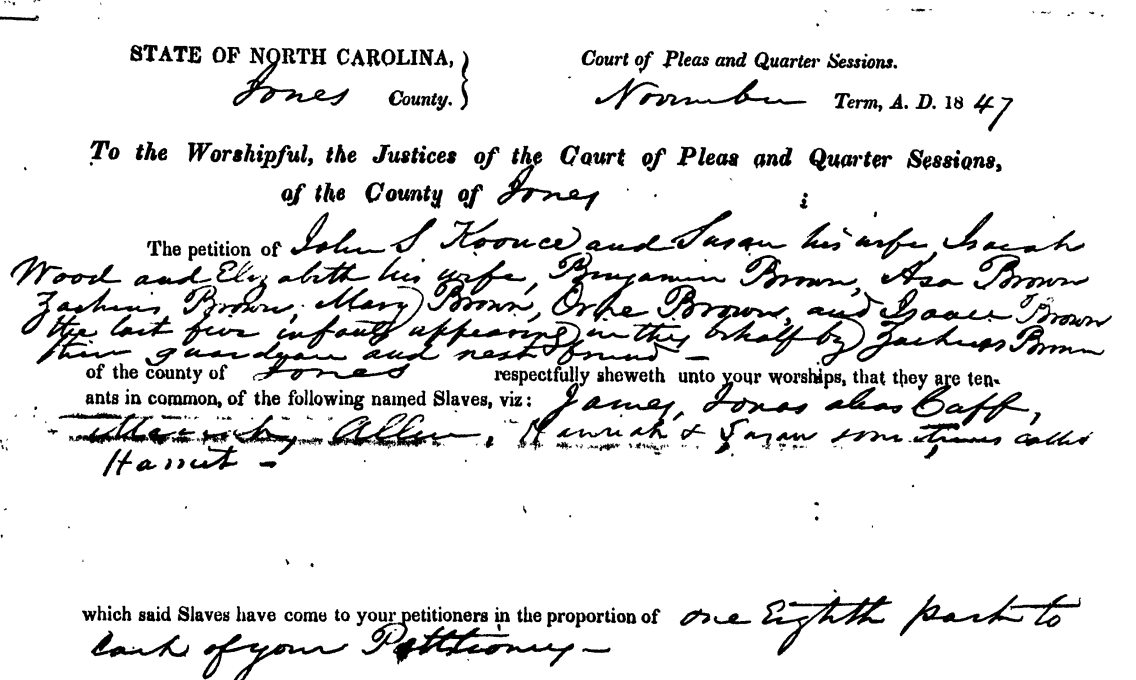 STATE OF NORTH CAROLINA,
Jones County.
Court of Pleas and Quarter Sessions.
November Term, A. D. 1847
To the Worshipful, the Justices of the Court of Pleas and Quarter Sessions,
of the County of Jones
The petition of John S Koonce and Susan his wife, Isaiah
Wood and Elizabeth his wife, Benjamin Brown, Asa Brown
Zacheus Brown, Mary Brown, Brown, and Brown
the last four infants appearing in this behalf by Zacheus Brown
their guardian and next friend —
of the county of Jones respectfully sheweth unto your worships, that they are ten-
ants in common, of the following named Slaves, viz: James, Jonas alias Caff,
Allen, Hannah & Susan sometimes called
Harriet —
which said Slaves have come to your petitioners in the proportion of one Eighth part to
each of your Petitioners —